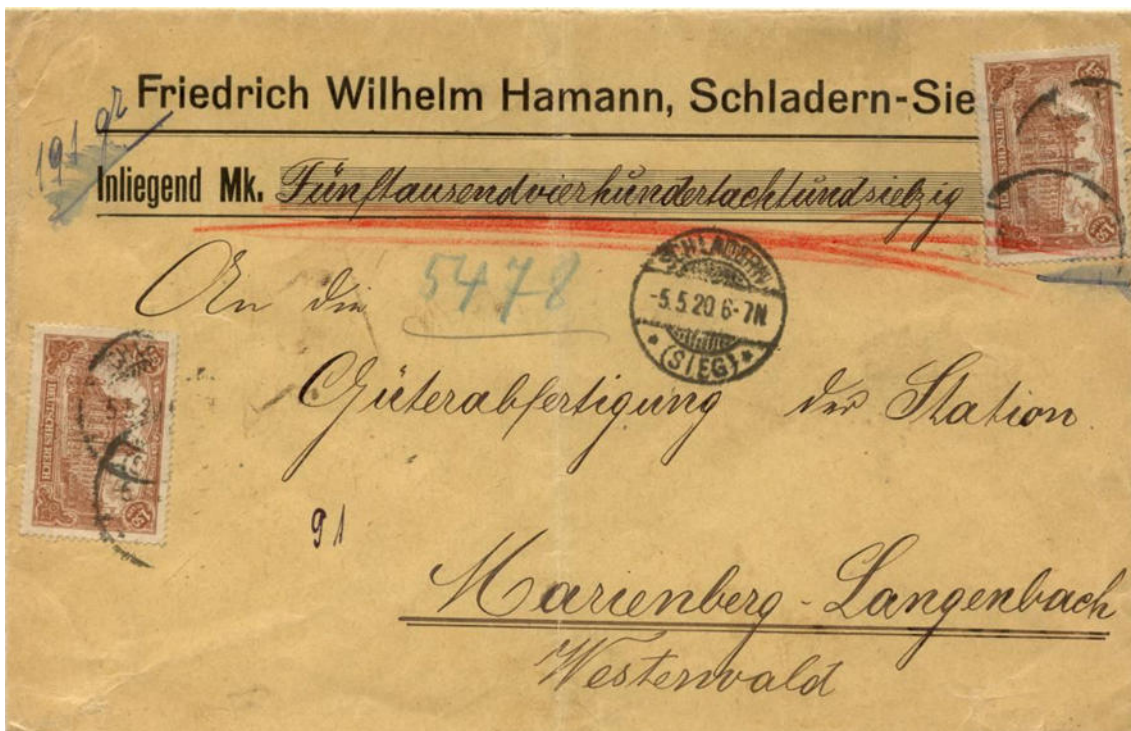 Friedrich Wilhelm Hamann, Schladern-Sie
191 gr
Inliegend Mk. Fünftausendvierhundertachtundsiebzig
An die
5478
SCHLADERN
-5.5.20 6-7N
(SIEG)
Güterabfertigung der Station
91
Marienberg-Langenbach
Westerwald
DEUTSCHES REICH
DEUTSCHES REICH